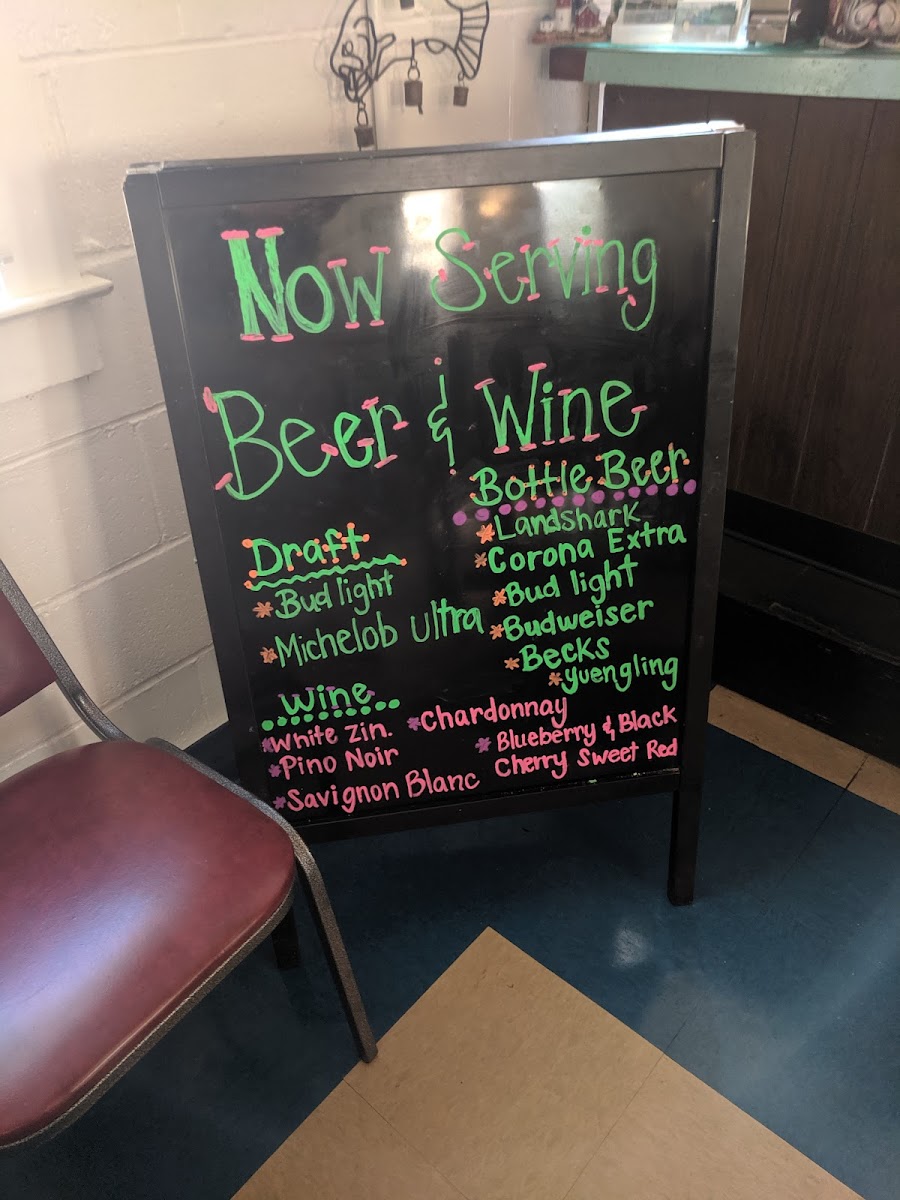 Now Serving
Beer & Wine
Draft
*Bud light
*Michelob Ultra
Bottle Beer
*Landshark
*Corona Extra
*Bud light
*Budweiser
*Becks
*yuengling
Wine
*White Zin.
*Pino Noir
*Savignon Blanc
*Chardonnay
*Blueberry & Black
Cherry Sweet Red